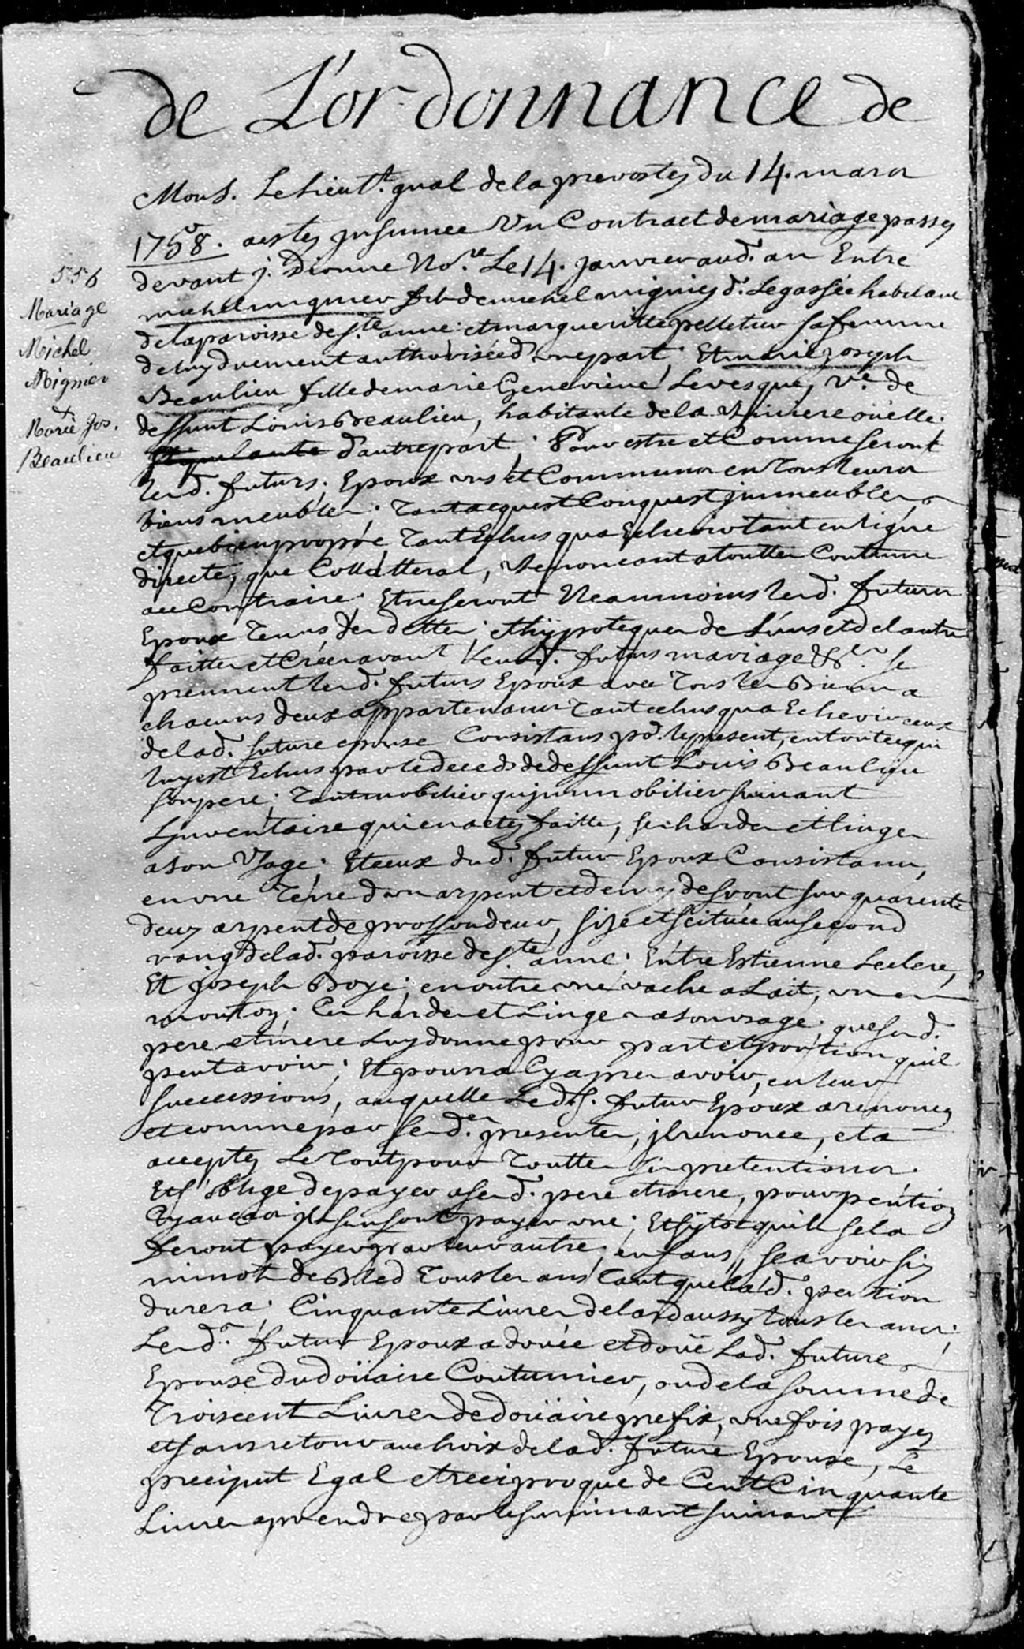 de L'or-donnance de
Mons. Le Lieutt. gnal de la prevostez du 14. mars
1758. aestez jnsinuee Un Contract de mariage passez
devant j. Dionne No.re Le 14. janvier aud. an Entre
michel mignier fils de michel mignier d. Legassée habitant
de la paroisse de Ste. anne et margueritte pelletier sa femme
de luy duement authorisée d'une part; Et marie joseph
Beaulieu fille de marie Genevieve Levesque, ve. de
deffunt Louis Beaulieu, habitante de la Riviere oüelle.
Stipulante d'autre part; Pour estre et Comme seront
lesd. futurs Epoux uns et Communs en Tous leurs
biens meubles. Tant acquest Conquest jmmeubles
et que bien propre, Tant Echus qua Echeoir tant en ligne
directe, que Collatteral, Renonceant a toutter Coutume
au Contraire; Et ne seront Neanmoins lesd. futurs
Epoux Tenus des detter et hÿpoteques de L'uns et de L'autre
faitter et Créer avant leurd. futurs mariage &&. Se
prennent lesd. futurs Epoux avec Tous les Biens a
chacuns deux appartenans Tant echus qua Echeoir ceux
de lad. future epouse Consistans pd. le present, en tout ce qui
luy est Echus par le deced de deffunt Louis Beaulieu
son pere; Tant mobilier qu jmmobilier suivant
Ljnventaire qui en a etez faitte, ses hardes et linges
a son Usage; Et ceux dud. futur Epoux Consistans,
en une Terre d'un arpent et demy de front sur quarente
deux arpent de proffondeur, size et scituée au second
rang de lad. paroisse de Ste. anne; Entre Estienne Leclerc,
Et joseph Boyé; en outre une vache a Lait, un
mouton; Ces hardes et Linges a son usage; que sesd.
pere et mere Luy donne pour part et portion quil
peut avoir; Et pourra Cy apres avoir, en leur
successions, auquelle Ledt. futur Epoux a renoncez
et comme par ses d. presentes, jl renonce, et a
acceptez Le Tout pour Toutter ses pretentions.
Et s'oblige de payer a sesd. pere et mere, pour pention
Cy aux cas jls s'en font payer une; Et sytot quils se la
feront payer par leur autre enfans, sçavoir six
minots de Bled Tous les ans Tant que lad. pention
durera; Cinquante Livres de Lard aussy tous les ans;
Le d. futur Epoux a douée et doüe Lad. future
Epouse du doüaire Coutumier, ou de la somme de
Trois cent Livres de doüaire prefix, une fois payez
et sans retour au choix de lad. future Epouse, Le
preciput Egal et reciproque de Cent Cinquante
Livres a prendre par le survivant suivant
556
Mariage
Michel
Mignier
&
Marie Jos.
Beaulieu